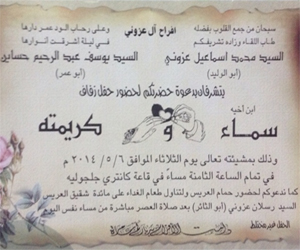 سبحان من جمع القلوب بفضله
وعلى رحاب الود عمر دارها
افراح آل عزوني
طاب اللقاء وزاده تشريفكم
في ليلة أشرقت أنوارها
السيد محمد اسماعيل عزوني
السيد يوسف عبد الرحيم حسايم
(ابو الوليد)
(ابو عمر)
يتشرفان بدعوة حضرتكم لحضور حفل زفاف
ابن اخيه
سماء و كريمته
وذلك بمشيئته تعالى يوم الثلاثاء الموافق ٢٠١٤/٥/٦ م
في تمام الساعة الثامنة مساءً في قاعة كانتري جلجولية
كما ندعوكم لحضور حمام العريس ولتناول طعام الغداء على مائدة شقيق العريس
السيد رسلان عزوني (ابو الثائر) بعد صلاة العصر مباشرة من مساء نفس اليوم
الحفل غير مختلط